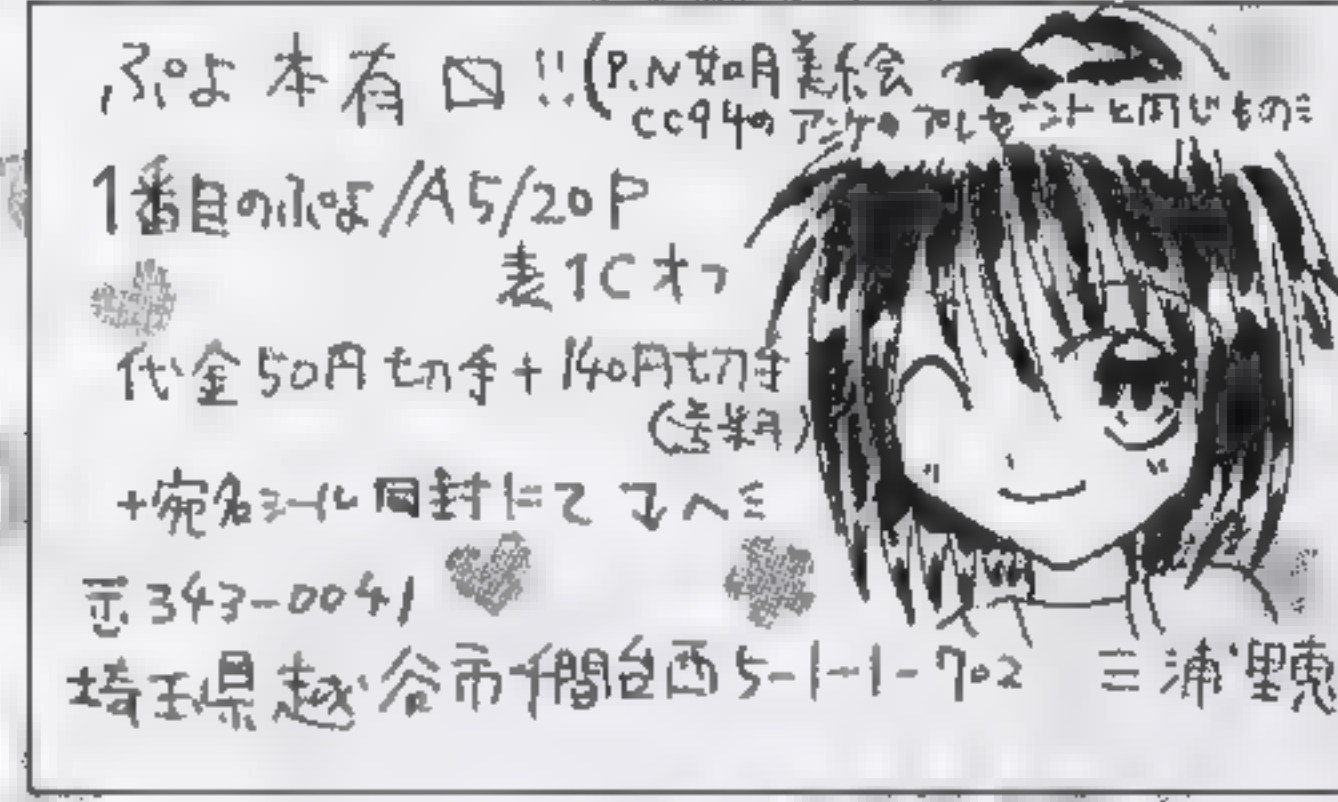 ぷよ本有〼!!(P.N如月美絵
CC94のアンケのプレゼントと同じものミ
1番目のぷよ/A5/20P
表1Cオフ
代金50円切手+140円切手
(送料)
+宛名シール同封にて↴へミ
〒343-0041
埼玉県越谷市千間台西5-1-1-702 三浦里恵